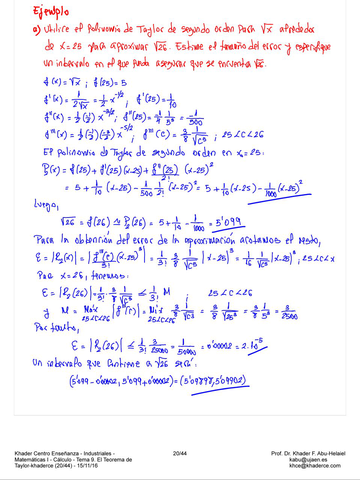 Ejemplo
a) Utilice el polinomio de Taylor de segundo orden para √x alrededor
de x=25 para aproximar √26. Estime el tamaño del error y especifique
un intervalo en el que pueda asegurar que se encuentra √26.
f(x) = √x ; f(25) = 5
f'(x) = 1/(2√x) = 1/2 x^(-1/2) ; f'(25) = 1/10
f''(x) = 1/2 (-1/2) x^(-3/2) ; f''(25) = -1/4 1/5³ = -1/500
f'''(x) = 1/2 (-1/2)(-3/2) x^(-5/2) ; f'''(c) = 3/8 1/√c⁵ ; 25<c<26
El polinomio de Taylor de segundo orden en x₀=25:
P₂(x) = f(25) + f'(25)(x-25) + f''(25)/2! (x-25)²
= 5 + 1/10 (x-25) - 1/500 1/2! (x-25)² = 5 + 1/10 (x-25) - 1/1000 (x-25)²
Luego,
√26 = f(26) ≃ P₂(26) = 5 + 1/10 - 1/1000 = 5'099
Para la obtención del error de la aproximación acotamos el resto,
E = |R₂(x)| = |f'''(c)/3! (x-25)³| = 1/3! 3/8 1/√c⁵ |x-25|³ = 1/16 1/√c⁵ |x-25|³, 25<c<x
Para x=26, tenemos:
E = |R₂(26)| = 1/3! 3/8 1/√c⁵ ≤ 1/3! M , 25<c<26
y M = Máx 25<c<26 |f'''(c)| = Máx 25<c<26 3/8 1/√c⁵ = 3/8 1/√25⁵ = 3/8 1/5⁵ = 3/25000
Por tanto,
E = |R₂(26)| ≤ 1/3! 3/25000 = 1/50000 = 0'00002 = 2.10⁻⁵
Un intervalo que contiene a √26 será:
(5'099-0'00002, 5'099+0'00002) = (5'09898, 5'09902)
Khader Centro Enseñanza - Industriales -
Matemáticas I - Cálculo - Tema 9. El Teorema de
Taylor-khaderce (20/44) - 15/11/16
20/44
Prof. Dr. Khader F. Abu-Helaiel
kabu@ujaen.es
khce@khaderce.com